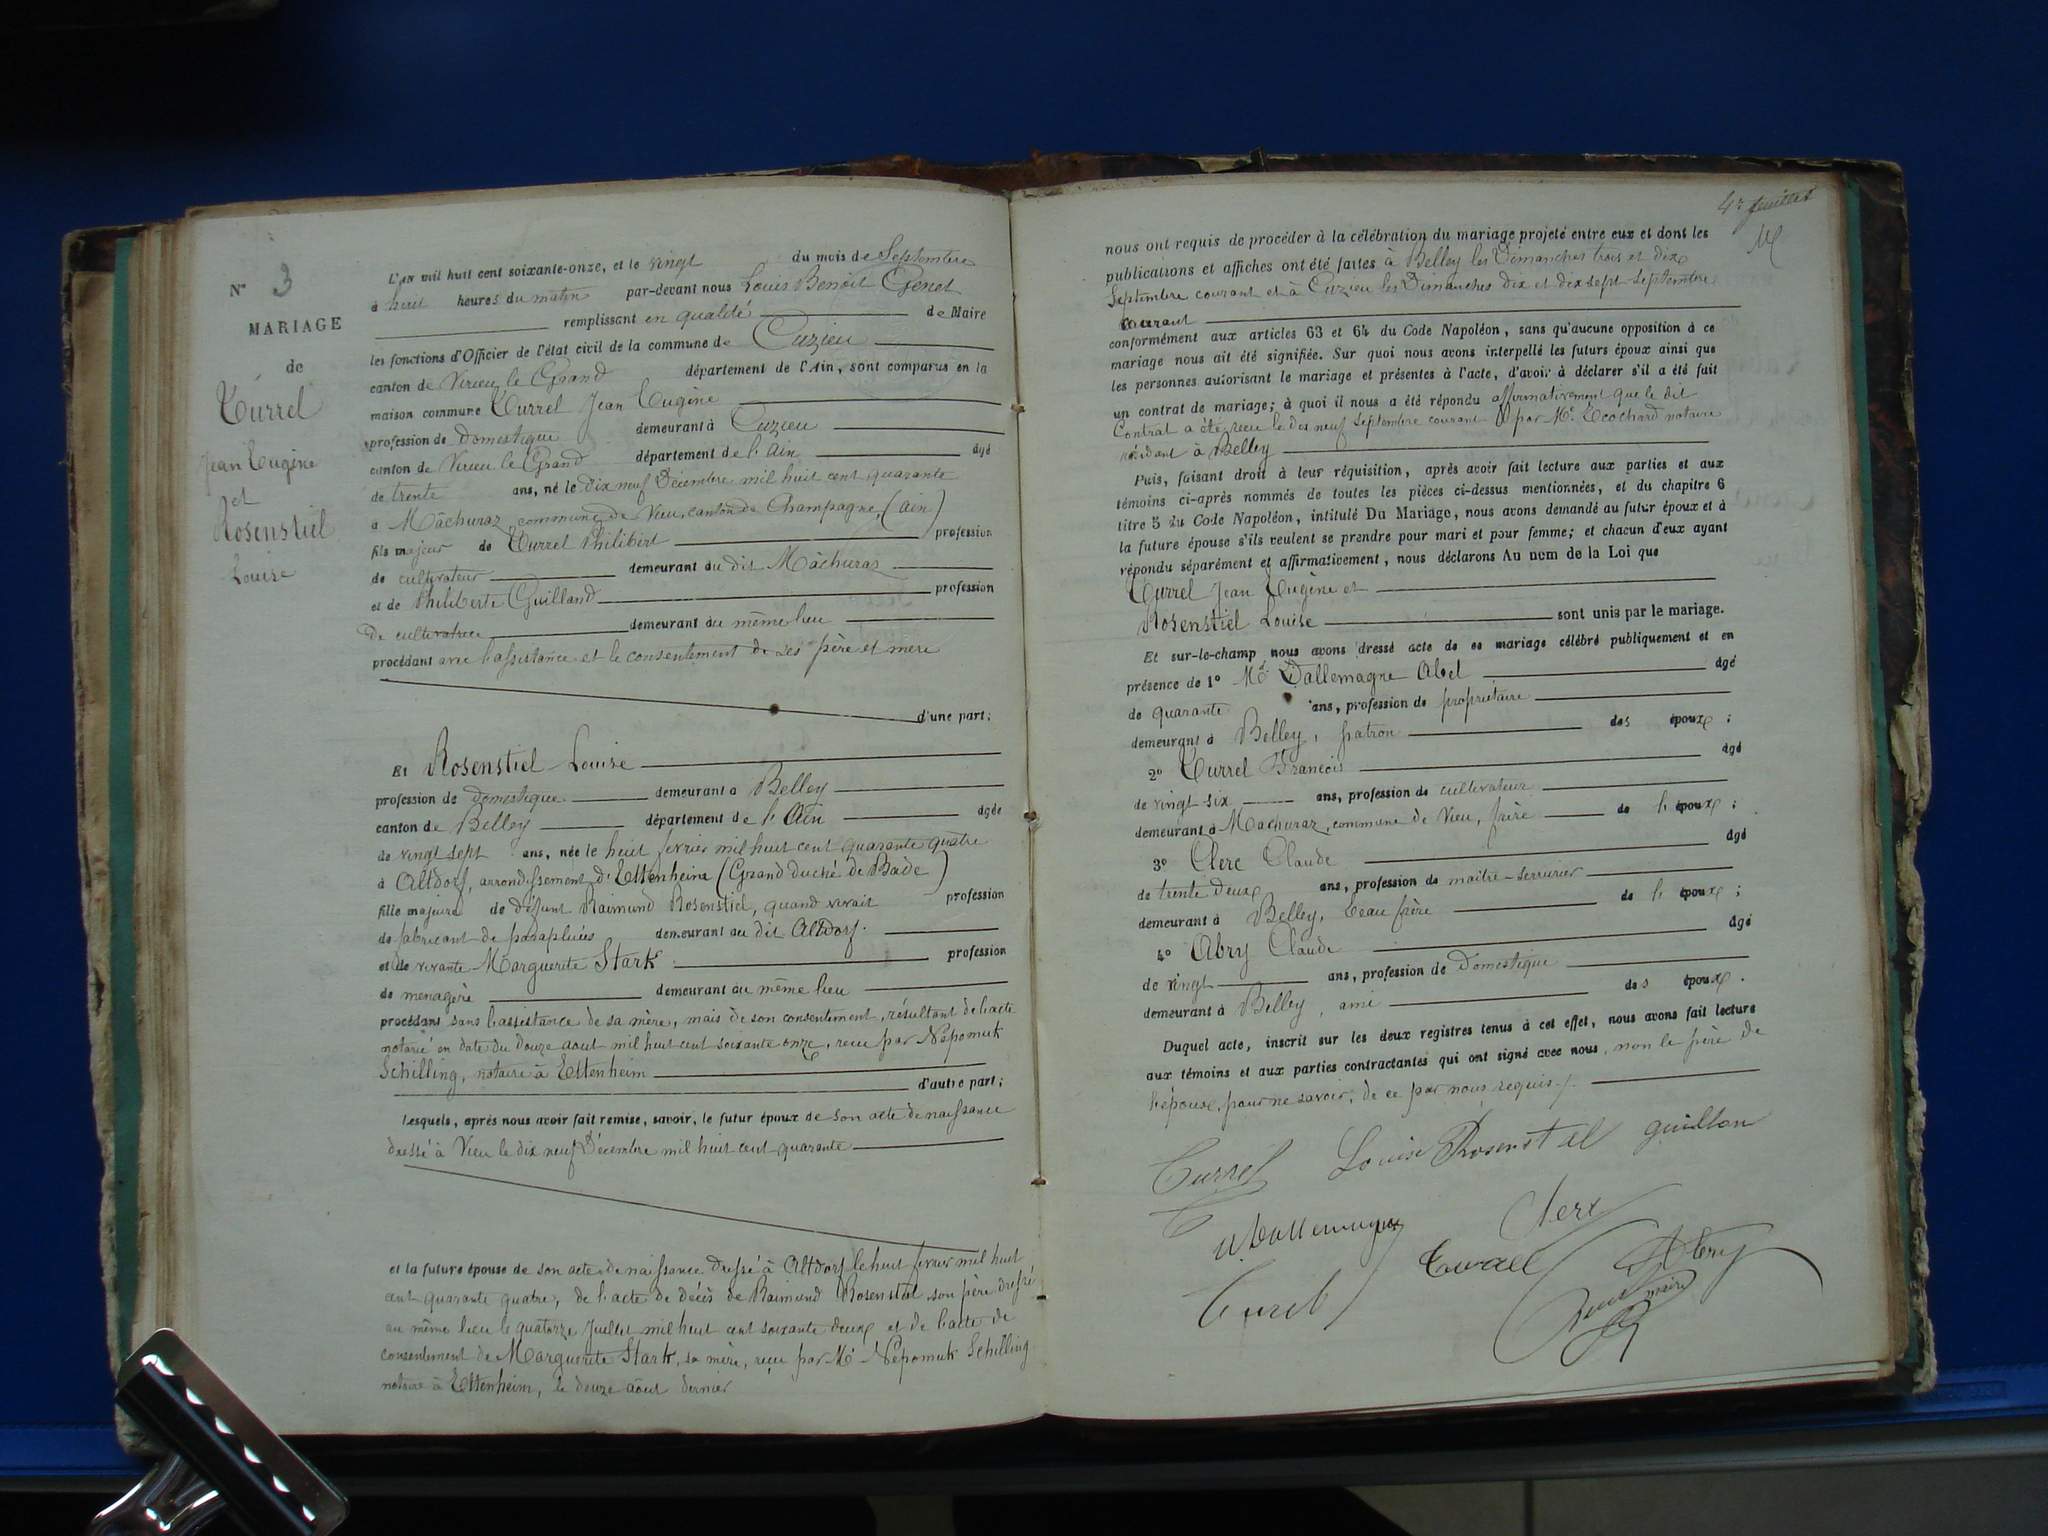 N° 3
MARIAGE
de
Turrel
Jean Eugène
et
Rosenstiel
Louise
L'an mil huit cent soixante-onze, et le vingt du mois de Septembre
à huit heures du matin par-devant nous Louis Benoit Genet
remplissant en qualité de Maire
les fonctions d'Officier de l'état civil de la commune de Cuzieu
canton de Virieu le Grand département de l'Ain, sont comparus en la
maison commune Turrel Jean Eugène
profession de Domestique demeurant à Cuzieu
canton de Virieu le Grand département de l'Ain âgé
de trente ans, né le dix neuf Décembre mil huit cent quarante
à Mâchuraz, commune de Vieu, canton de Champagne, (Ain)
fils majeur de Turrel Philibert profession
de cultivateur demeurant au dit Mâchuraz
et de Philiberte Guilland profession
de cultivatrice demeurant au même lieu
procédant avec l'assistance et le consentement de ses père et mère
d'une part;
Et Rosenstiel Louise
profession de domestique demeurant à Belley
canton de Belley département de l'Ain âgée
de vingt sept ans, née le huit février mil huit cent quarante quatre
à Altdorf, arrondissement d'Ettenheim (Grand Duché de Bade)
fille majeure de défunt Raimund Rosenstiel, quand vivait profession
de fabricant de parapluies demeurant au dit Altdorf.
et de vivante Marguerite Stark profession
de menagère demeurant au même lieu
procédant sans l'assistance de sa mère, mais de son consentement, résultant de l'acte
notarié en date du douze aout mil huit cent soixante onze, reçu par Népomuk
Schilling, notaire à Ettenheim
d'autre part;
Lesquels, après nous avoir fait remise, savoir, le futur époux de son acte de naissance
dressé à Vieu le dix neuf Décembre mil huit cent quarante
et la future épouse de son acte de naissance dressé à Altdorf le huit février mil huit
cent quarante quatre, de l'acte de décès de Raimund Rosenstiel son père dressé
au même lieu le quatorze Juillet mil huit cent soixante deux et de l'acte de
consentement de Marguerite Stark, sa mère, reçu par Me Népomuk Schilling
notaire à Ettenheim, le douze août dernier
4e feuillet
nous ont requis de procéder à la célébration du mariage projeté entre eux et dont les
publications et affiches ont été faites à Belley les Dimanches trois et dix
Septembre courant et à Cuzieu les Dimanches dix et dix sept Septembre
courant
conformément aux articles 63 et 64 du Code Napoléon, sans qu'aucune opposition à ce
mariage nous ait été signifiée. Sur quoi nous avons interpellé les futurs époux ainsi que
les personnes autorisant le mariage et présentes à l'acte, d'avoir à déclarer s'il a été fait
un contrat de mariage; à quoi il nous a été répondu affirmativement que le dit
Contrat a été reçu le dix neuf Septembre courant par Me Ecochard notaire
résidant à Belley
Puis, faisant droit à leur réquisition, après avoir fait lecture aux parties et aux
témoins ci-après nommés de toutes les pièces ci-dessus mentionnées, et du chapitre 6
titre 5 du Code Napoléon, intitulé Du Mariage, nous avons demandé au futur époux et à
la future épouse s'ils veulent se prendre pour mari et pour femme; et chacun d'eux ayant
répondu séparément et affirmativement, nous déclarons Au nom de la Loi que
Turrel Jean Eugène et
Rosenstiel Louise sont unis par le mariage.
Et sur-le-champ nous avons dressé acte de ce mariage célébré publiquement et en
présence de 1° Mr Dallemagne Abel âgé
de quarante ans, profession de propriétaire
demeurant à Belley, patron des époux;
2° Turrel François âgé
de vingt six ans, profession de cultivateur
demeurant à Machuraz, commune de Vieu, frère de l'époux;
3° Clerc Claude âgé
de trente deux ans, profession de maître-serrurier
demeurant à Belley, beau frère de l'époux;
4° Abry Claude âgé
de vingt ans, profession de Domestique
demeurant à Belley, ami des époux.
Duquel acte, inscrit sur les deux registres tenus à cet effet, nous avons fait lecture
aux témoins et aux parties contractantes qui ont signé avec nous, non le père de
l'épouse, pour ne savoir, de ce par nous requis.
Turrel Louise Rosenstiel guillon
A Dallemagne Clerc
Turrel Abry
Turel Genet maire